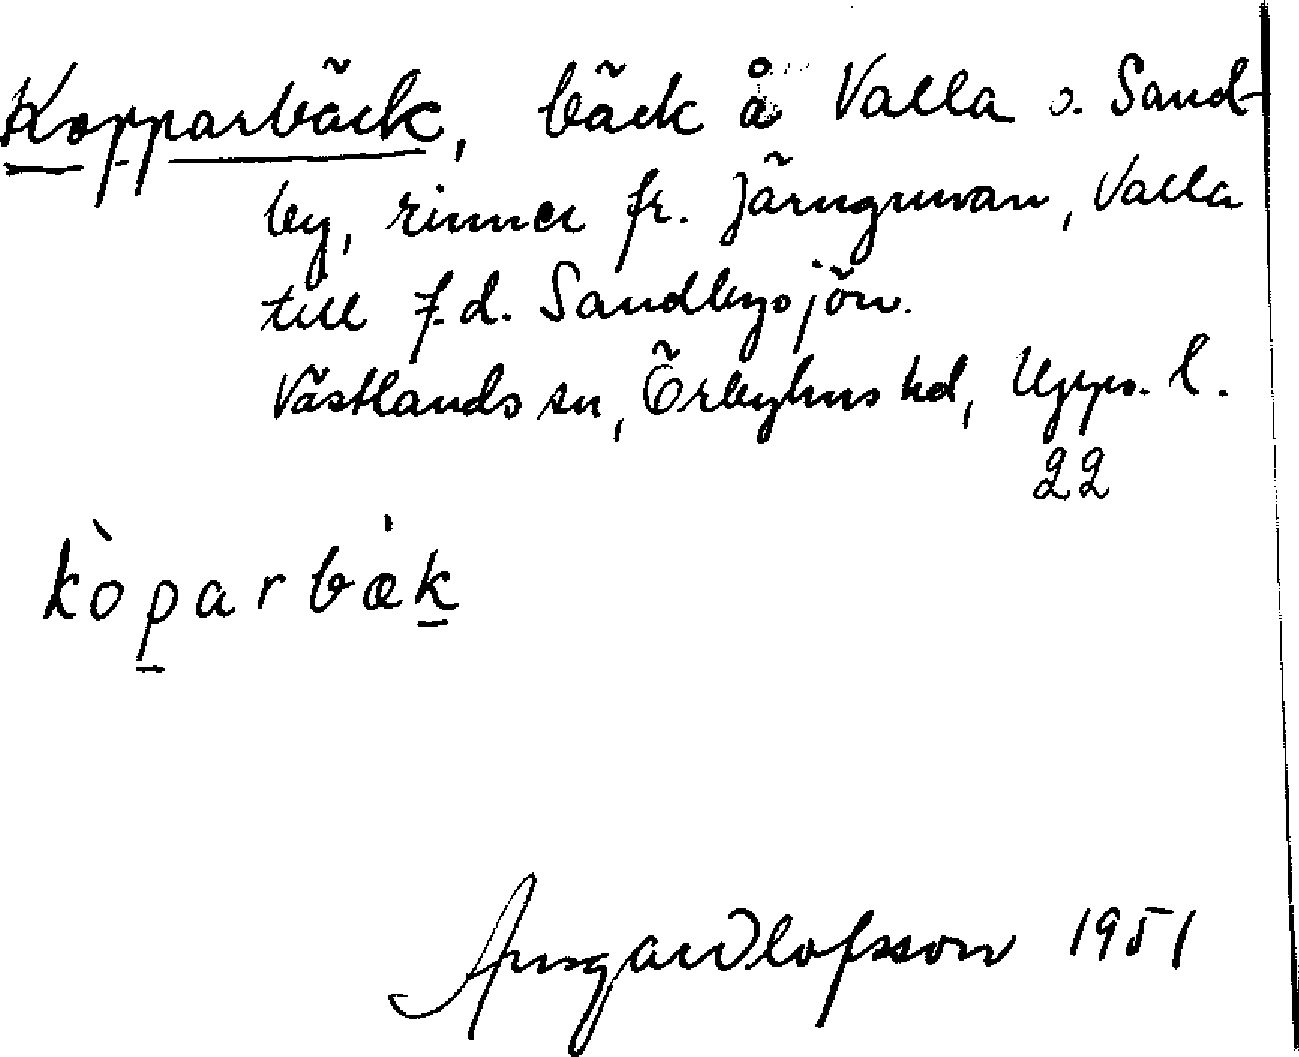 Kopparbäck, bäck å Valla o. Sand-
by, rinner fr. Järngruvan, Valla
till f.d. Sandbysjön.
Västlands sn, Örbyhus hd, Upps. l.
22
kòparbæk
Ansgar Olofsson 1951